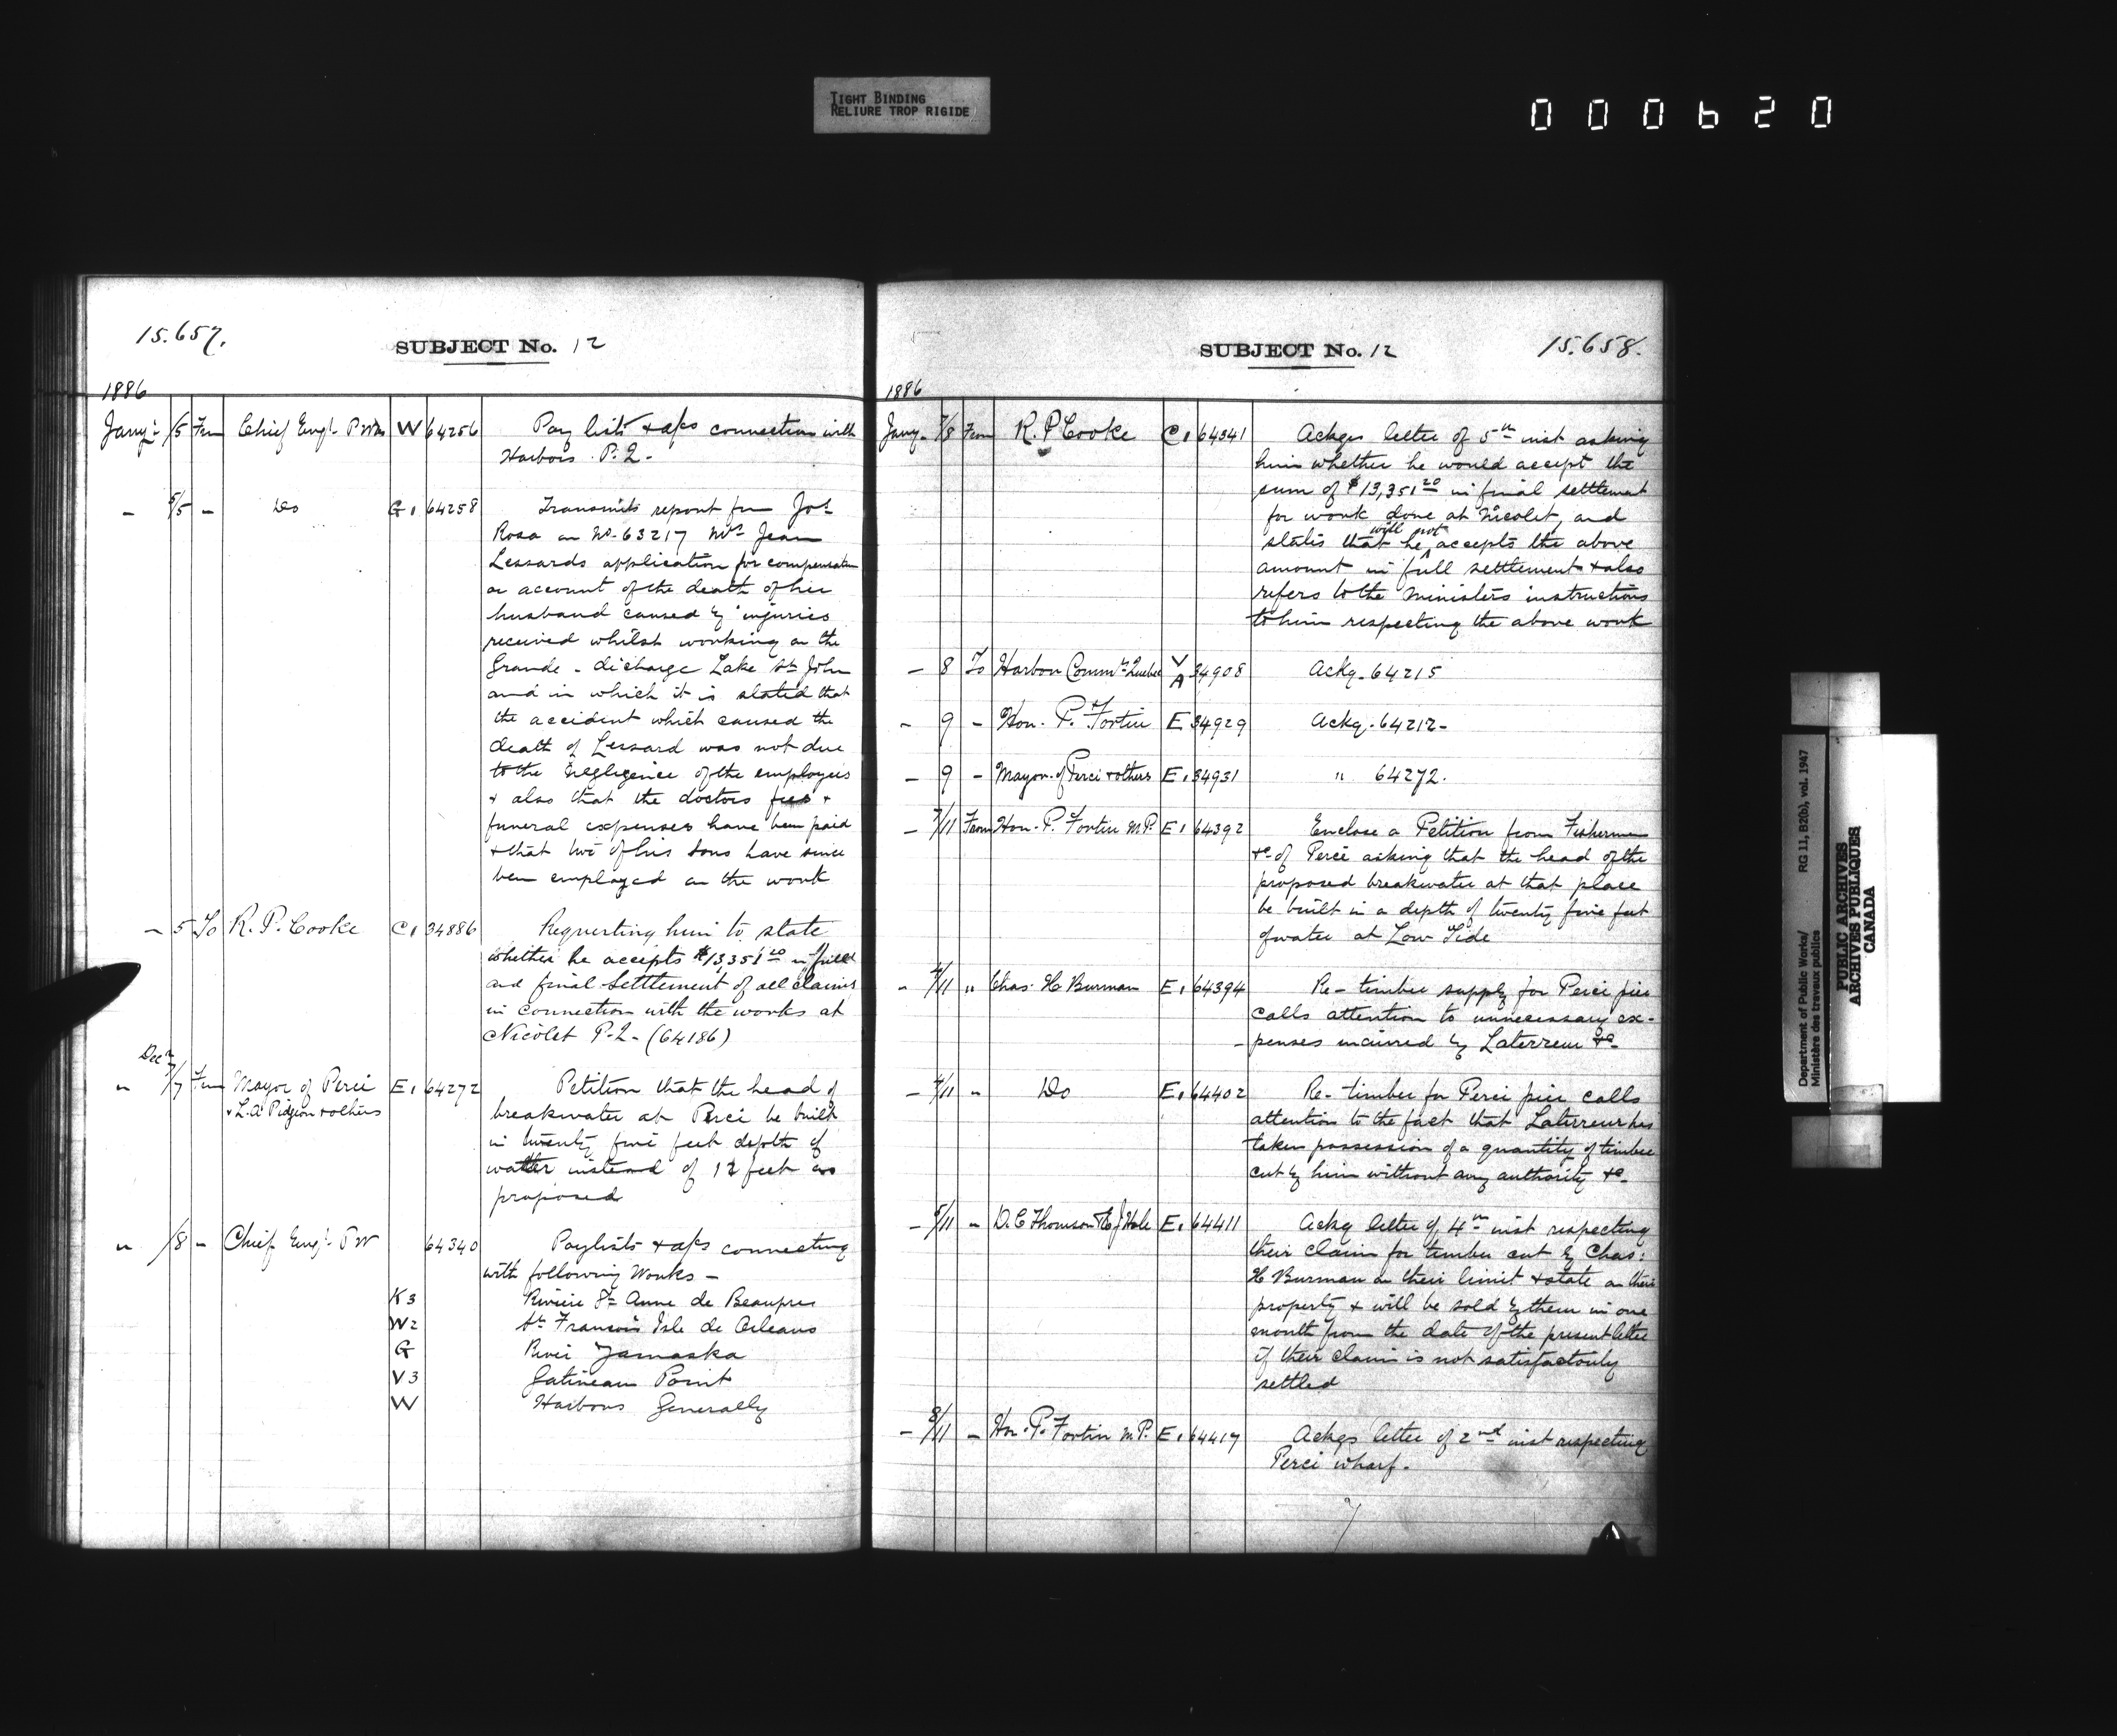 TIGHT BINDING
RELIURE TROP RIGIDE
000620
15.657.
SUBJECT No. 12
1886
Jany 5 From Chief Engr. P Wks W 64256 Pay lists & a/cs connection with
Harbors. P.Q.
- 5/5 - Do G1 64258 Transmits report from Jos.
Rosa on No. 63217 Mrs Jean
Lessards application for compensation
on account of the death of her
husband caused by injuries
received whilst working on the
Grande - discharge Lake St John
and in which it is stated that
the accident which caused the
death of Lessard was not due
to the negligence of the employees
& also that the doctors fees &
funeral expenses have been paid
& that two of his sons have since
been employed on the work
- 5 To R. P. Cooke C1 34886 Requesting him to state
whether he accepts $13,351.20 in full
and final settlement of all claims
in connection with the works at
Nicolet P.Q. (64186)
Decr
" 7/7 From Mayor of Percé E1 64272 Petition that the head of
& L. A. Pidgeon & others breakwater at Percé be built
in twenty five feet depth of
water instead of 12 feet as
proposed
" /8 - Chief Engr. P W 64340 Paylists & a/cs connecting
with following Works -
K3 Rivière Ste Anne de Beaupre
W2 St Francois Isle de Orleans
G River Yamaska
V3 Gatineau Point
W Harbors Generally
SUBJECT No. 12
15.658.
1886
Jany. 7/8 From R. P Cooke C1 64341 Ackges letter of 5th inst asking
him whether he would accept the
sum of $13,351.20 in final settlement
for work done at Nicolet, and
states that he will not accepts the above
amount in full settlement & also
refers to the Ministers instructions
to him respecting the above work
- 8 To Harbor Commrs. Quebec V/A 34908 Ackg. 64215
- 9 - Hon. P. Fortin E 34929 Ackg. 64212 -
- 9 - Mayor of Percé & others E1 34931 " 64272.
- 7/11 From Hon. P. Fortin M.P. E1 64392 Enclose a Petition from Fishermen
&c of Percé asking that the head of the
proposed breakwater at that place
be built in a depth of twenty five feet
of water at Low Tide
- 4/11 " Chas. H Burman E1 64394 Re - timber supply for Percé pier
calls attention to unnecessary ex-
penses incurred by Laterreur &c
- 4/11 " Do E1 64402 Re - timber for Percé pier calls
attention to the fact that Laterreur has
taken possession of a quantity of timber
cut by him without any authority &c
- 5/11 " D. C Thomson & E J Hale E1 64411 Ackg letter of 4th inst respecting
their claim for timber cut by Chas:
H Burman on their limit & state on their
property & will be sold by them in one
month from the date of the present letter
if their claim is not satisfactorily
settled
- 8/11 - Hon. P. Fortin M.P. E1 64417 Ackges letter of 2nd inst respecting
Percé wharf.
Department of Public Works/
Ministère des travaux publics
RG 11, B2(b), vol. 1947
PUBLIC ARCHIVES
ARCHIVES PUBLIQUES
CANADA